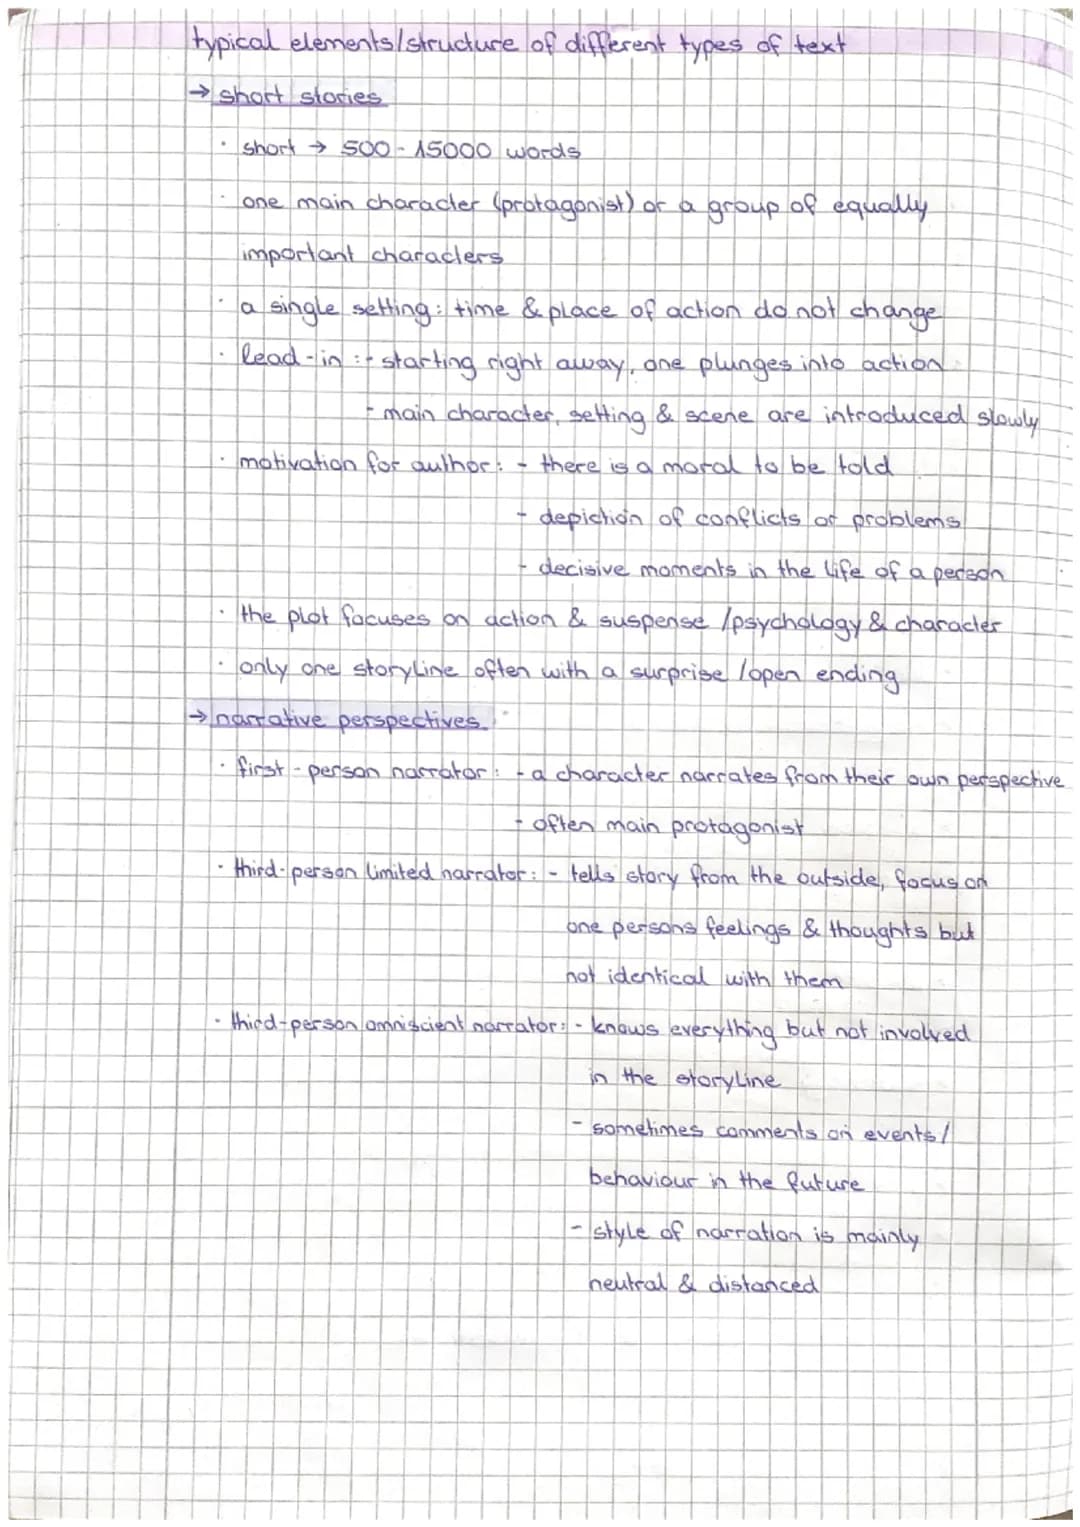 typical elements/structure of different types of text
→ short stories
· short → 500 - 15000 words
· one main character (protagonist) or a group of equally
important characters
· a single setting: time & place of action do not change
· lead-in : - starting right away, one plunges into action
- main character, setting & scene are introduced slowly
· motivation for author: - there is a moral to be told
- depiction of conflicts or problems
- decisive moments in the life of a person
· the plot focuses on action & suspense /psychology & character
· only one storyline often with a surprise /open ending
→ narrative perspectives
· first-person narrator: - a character narrates from their own perspective
- often main protagonist
· third-person limited narrator: - tells story from the outside, focus on
one persons feelings & thoughts but
not identical with them
· third-person omniscient narrator: - knows everything but not involved
in the storyline
- sometimes comments on events/
behaviour in the future
- style of narration is mainly
neutral & distanced